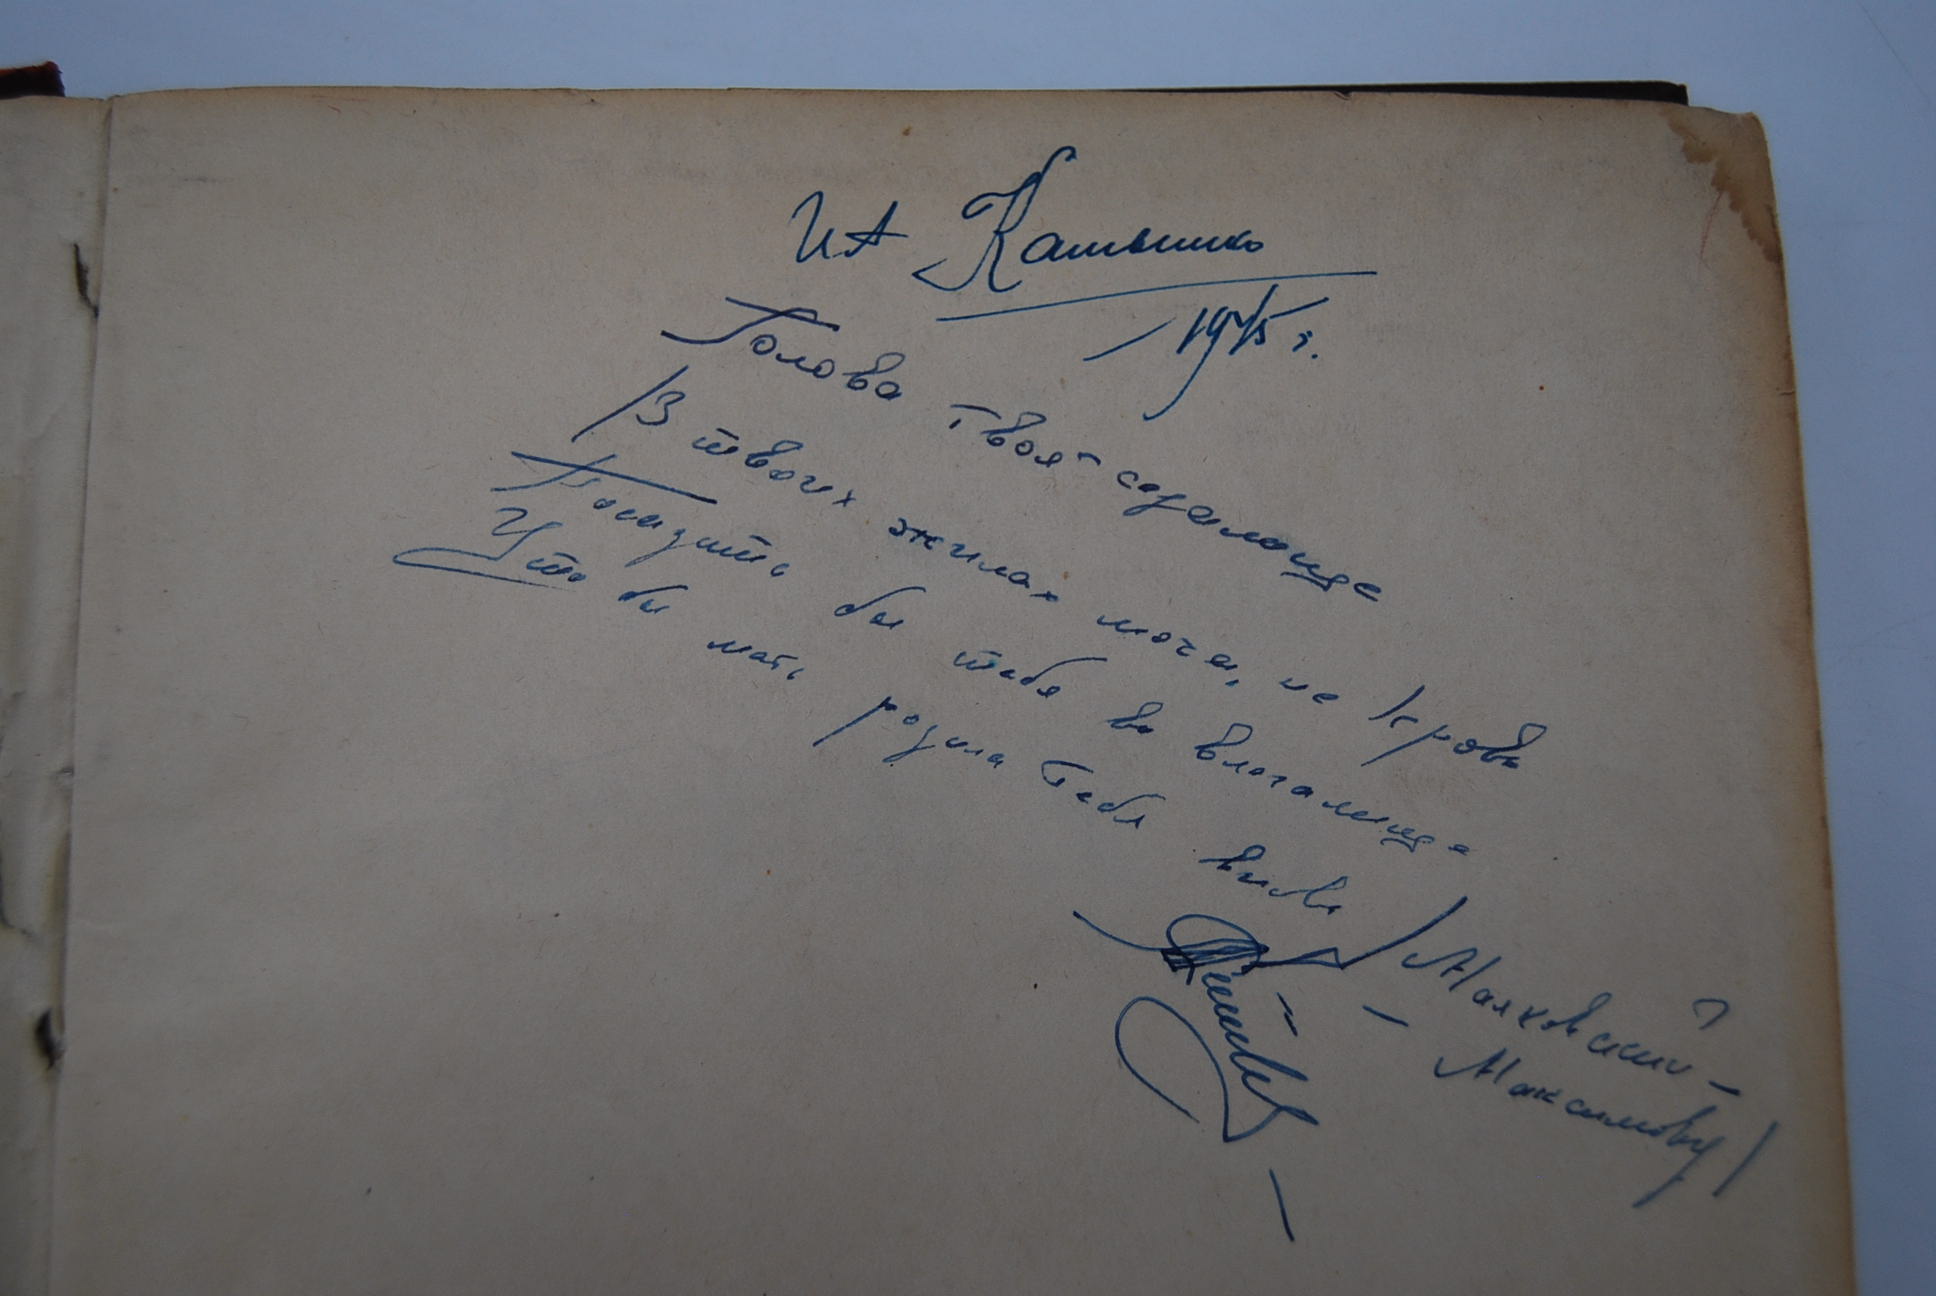 ИА Камышко
1975 г.
Голова твоя - седалище
В твоих жилах моча, не кровь
Посадить бы тебя во влагалище
Что бы мать родила тебя вновь
/Маяковский -
- Максимову/